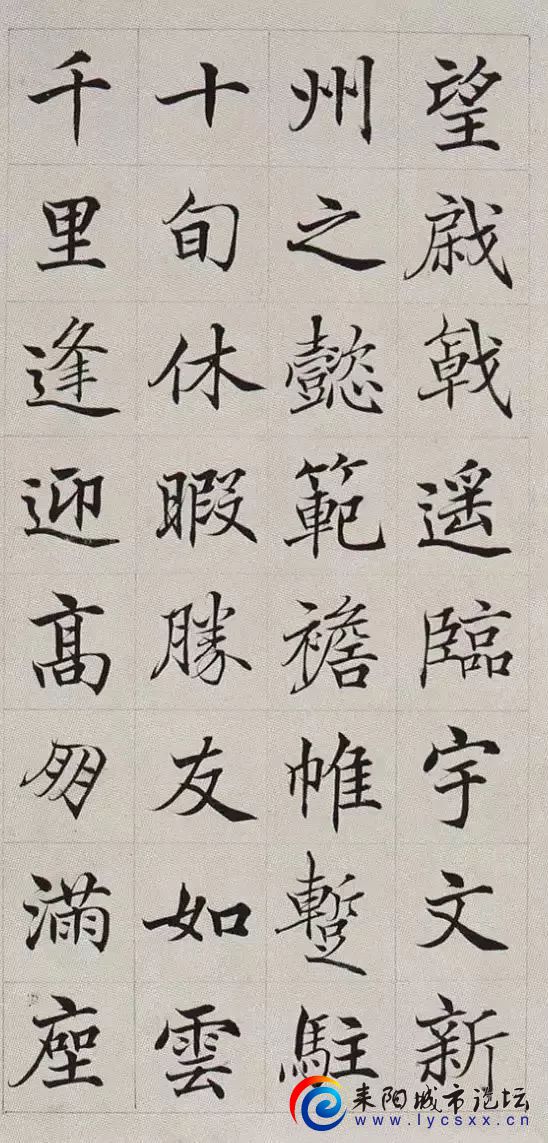 望戚戟遥臨宇文新
州之懿範襜帷蹔駐
十旬休暇勝友如雲
千里逢迎髙朋滿座
耒阳城市论坛
www.lycsxx.cn